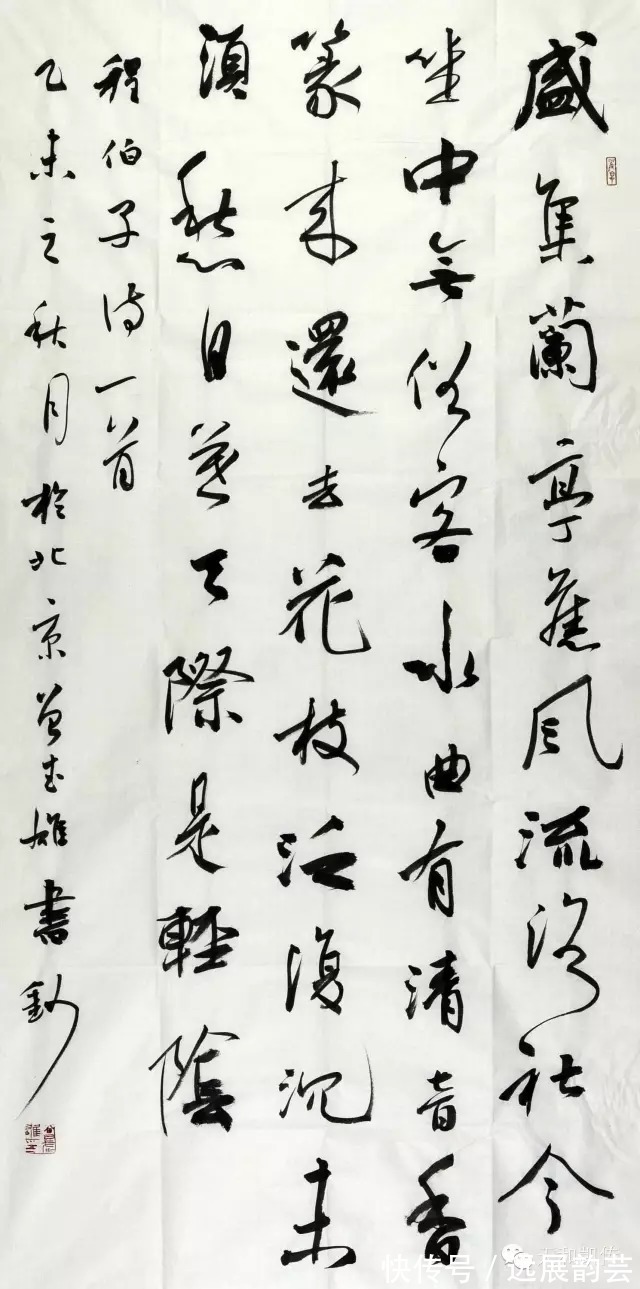 盛集蘭亭舊風流洛社今
坐中無俗客水曲有清音香
篆来還去花枝泛復沉未
須愁日暮天際是輕陰
程伯子诗一首
乙未之秋月於北京曾雄書
快传号／远展韵芸